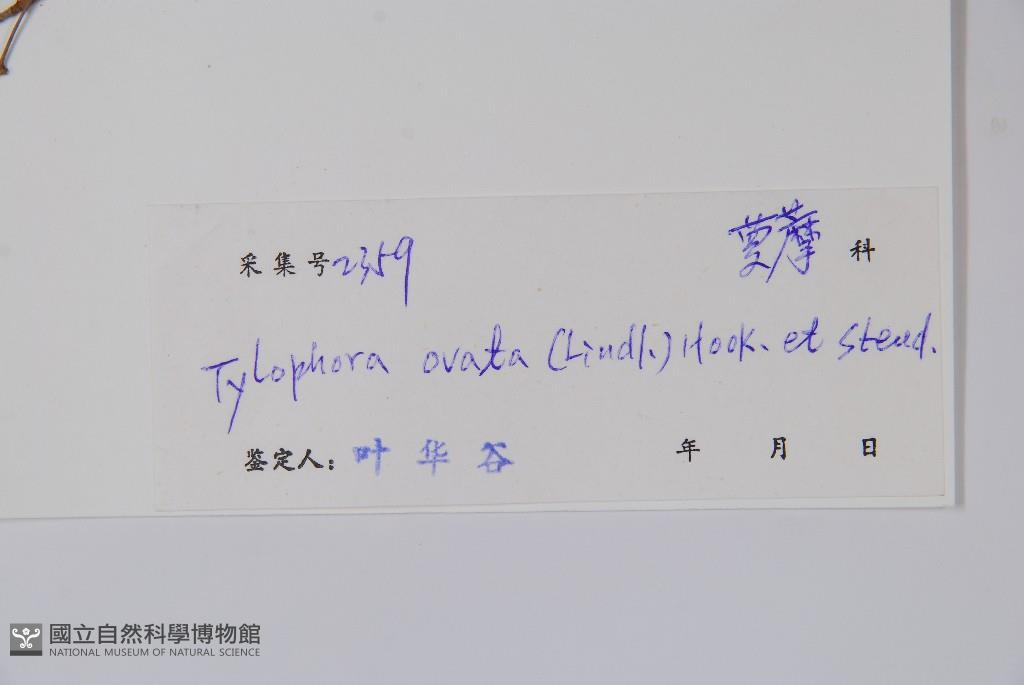 采集号 2359 萝藦 科
Tylophora ovata (Lindl.) Hook. et Steud.
鉴定人: 叶华谷 年 月 日
國立自然科學博物館
NATIONAL MUSEUM OF NATURAL SCIENCE